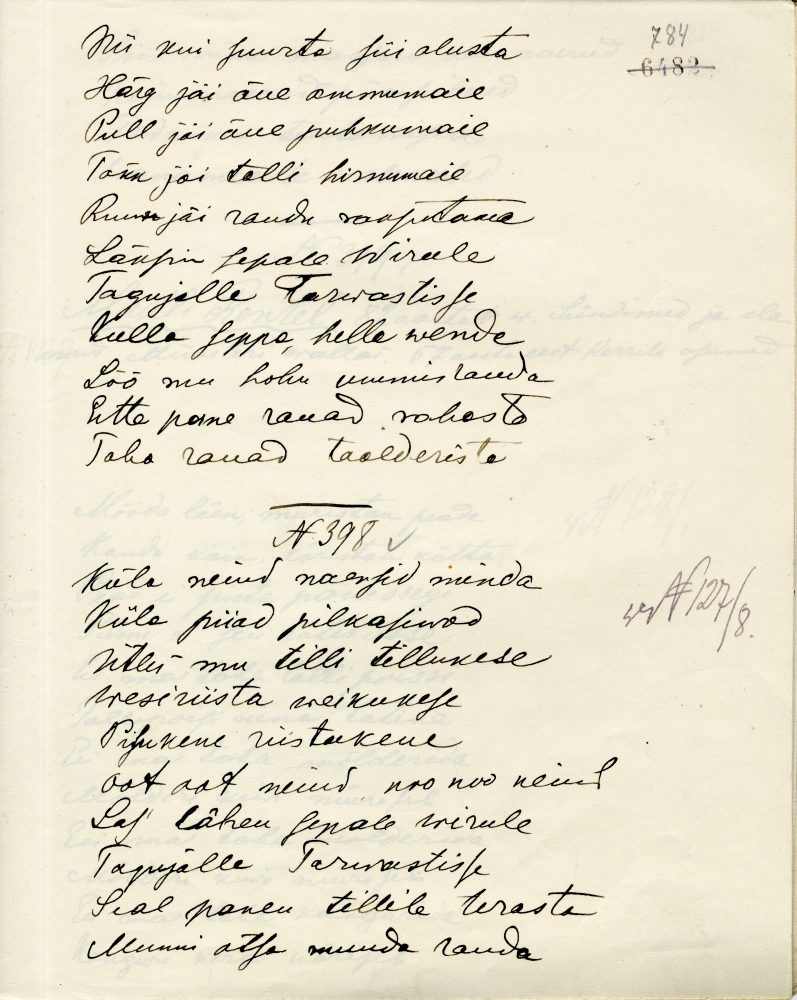 784
6482
Nii kui suurta süi alusta
Härg jäi õue ammumaie
Pull jäi õue puhkumaie
Täkk jäi talli hirnumaie
Ruun jäi rauda raaputama
Läksin sepale Wirule
Tagujalle Tarwastisse
Kulla seppa, hella wenda
Löö mu hobu uumisrauda
Ette pane rauad rabasta
Taha rauad taalderista
N 398
Küla neiud naersid minda
Küla piiad pilkasiwad
Ütlid mu tilli tillukese
Wesiriista weikukese
Pisukene riistakene
oot oot neiud noo noo neiud
Las' lähen sepale wirule
Tagujalle Tarwastisse
Seal panen tillile terasta
Munni otsa muuda rauda
N 127/8.